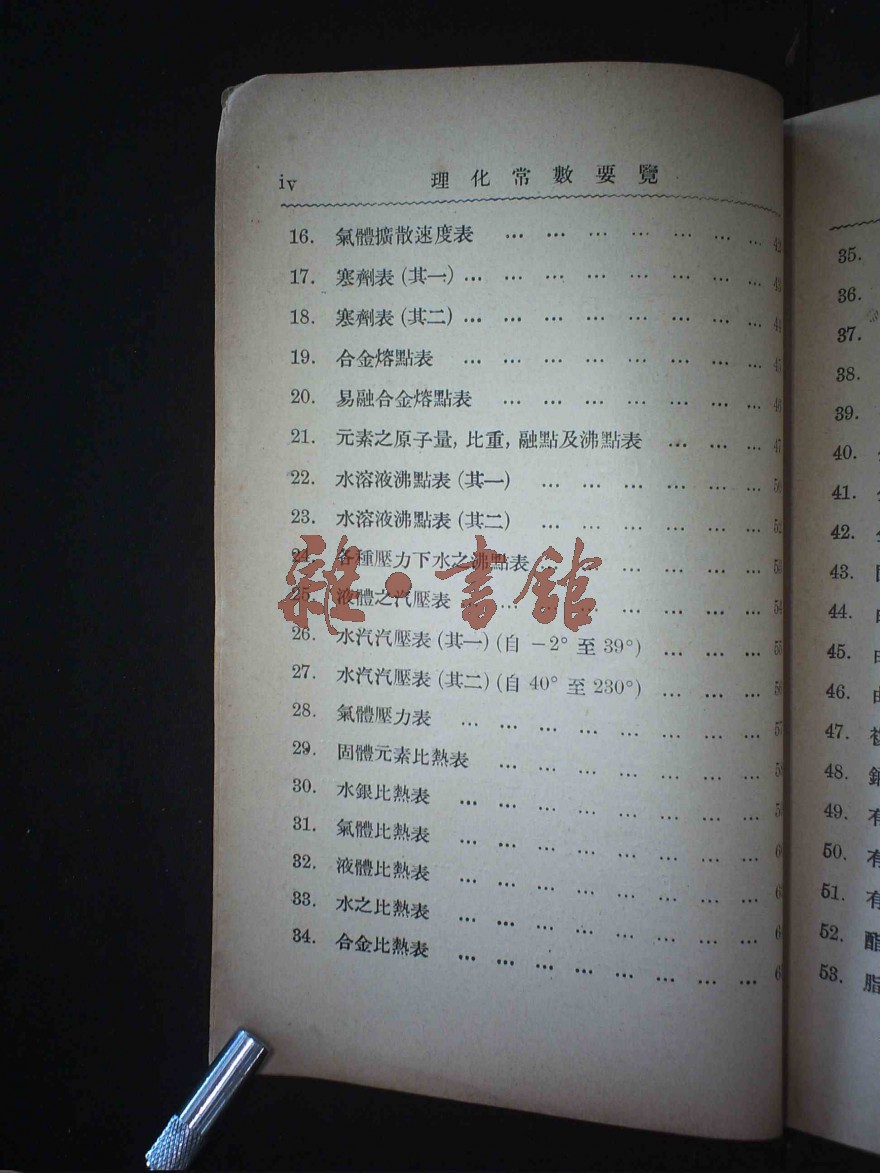 iv 理化常數要覽
16. 氣體擴散速度表 … … … … … … … 42
17. 寒劑表(其一) … … … … … … … … 43
18. 寒劑表(其二) … … … … … … … … 44
19. 合金熔點表 … … … … … … … … 45
20. 易融合金熔點表 … … … … … … … 46
21. 元素之原子量, 比重, 融點及沸點表 … … … 47
22. 水溶液沸點表(其一) … … … … … … 50
23. 水溶液沸點表(其二) … … … … … … 52
24. 各種壓力下水之沸點表 … … … … … … 53
25. 液體之汽壓表 … … … … … … … … 54
26. 水汽汽壓表(其一)(自 −2° 至 39°) … … … 55
27. 水汽汽壓表(其二)(自 40° 至 230°) … … … 56
28. 氣體壓力表 … … … … … … … … 57
29. 固體元素比熱表 … … … … … … … 58
30. 水銀比熱表 … … … … … … … … 59
31. 氣體比熱表 … … … … … … … …
32. 液體比熱表 … … … … … … … …
33. 水之比熱表 … … … … … … … …
34. 合金比熱表 … … … … … … … …
雜·書館
35.
36.
37.
38.
39.
40.
41.
42.
43.
44.
45.
46.
47.
48.
49. 有
50. 有
51. 有
52. 酯
53. 脂